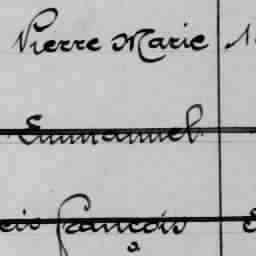 Pierre Marie
Emmanuel
François